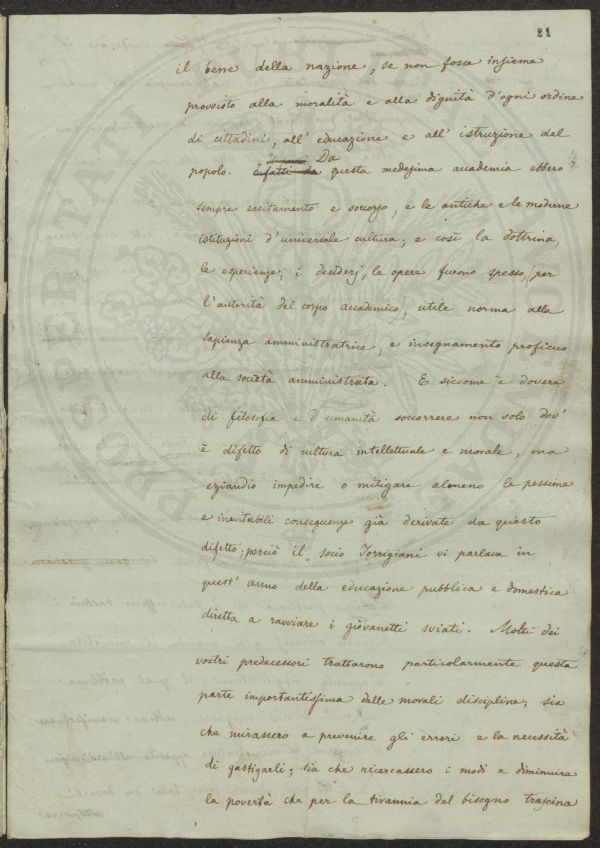 21
il bene della nazione, se non fosse insieme
provvisto alla moralità e alla dignità d'ogni ordine
di cittadini, all' educazione e all' istruzione del
popolo. Da questa medesima accademia ebbero
sempre eccitamento e soccorso, e le antiche e le moderne
istituzioni d'universale cultura; e così la dottrina,
le esperienze, i desiderj, le opere furono spesso, (per
l'autorità del corpo accademico), utile norma alla
sapienza amministratrice, e insegnamento proficuo
alla società amministrata. E siccome è dovere
di filosofia e d'umanità soccorrere non solo dov'
è difetto di cultura intellettuale e morale, ma
eziandio impedire o mitigare almeno le pessime
e inevitabili conseguenze già derivate da questo
difetto; perciò il socio Torrigiani vi parlava in
quest' anno della educazione pubblica e domestica
diretta a ravviare i giovanetti sviati. Molti dei
vostri predecessori trattarono particolarmente questa
parte importantissima delle morali discipline; sia
che mirassero a prevenire gli errori e la necessità
di gastigarli; sia che ricercassero i modi a diminuire
la povertà che per la tirannia del bisogno trascina